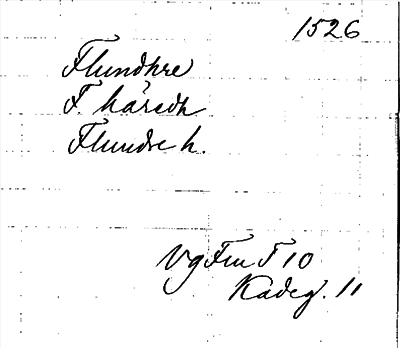 1526
Flundhre
F. häredh
Flundre h.
Vg Fm T 10
Kadeg. 11